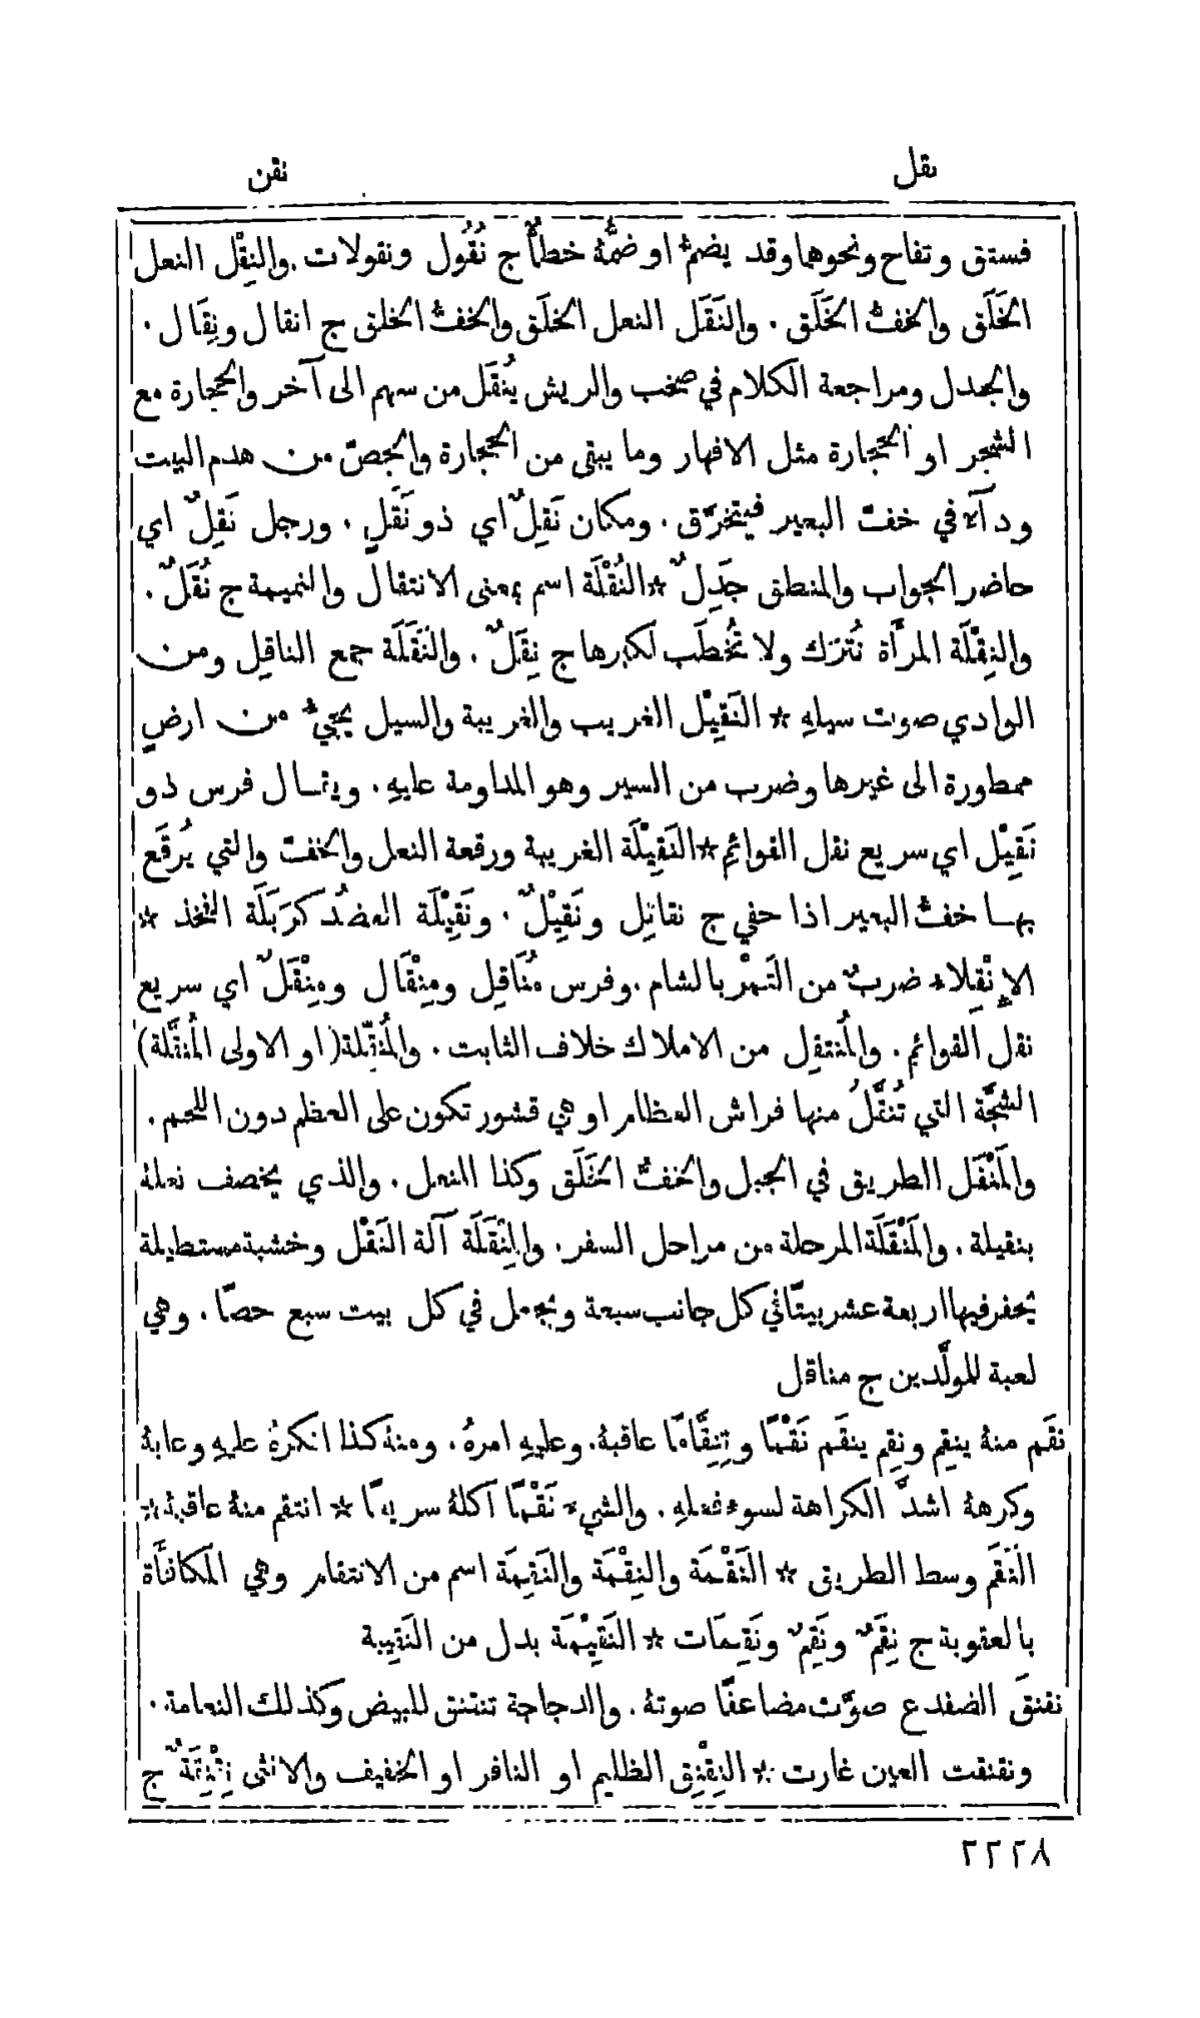 نقل
نقن
فستق وتفاح ونحوهما وقد يضمّ او ضمُّهُ خطأٌ ج نُقُول ونقولات. والنِقْل النعل
الخَلَق والخفّ الخَلَق. والنَقَل النعل الخلَق والخفّ الخلق ج انقال ونِقَال.
والجدل ومراجعة الكلام في صخب والريش يُنقَل من سهم الى آخر والحجارة مع
الشجر او الحجارة مثل الافهار وما يبقى من الحجارة والجصّ من هدم البيت
ودآء في خفّ البعير فيتخرَّق. ومكان نَقِلٌ اي ذو نَقَلٍ. ورجل نَقِلٌ اي
حاضر الجواب والمنطق جَدِلٌ * النُقْلَة اسم بمعنى الانتقال والنميمة ج نُقَلٌ.
والنِقْلَة المرأَة تُترَك ولا تُخطَب لكبرها ج نِقَلٌ. والنَقَلَة جمع الناقِل ومن
الوادي صوت سيلهِ * النَقِيْل الغريب والغريبة والسيل يجيءُ من ارضٍ
ممطورة الى غيرها وضرب من السير وهو المداومة عليهِ. ويقال فرس ذو
نَقِيْل اي سريع نقل القوائم * النَقِيْلَة الغريبة ورقعة النعل والخفّ والتي يُرقَع
بها خفّ البعير اذا حفي ج نقائِل ونَقِيْلٌ. ونَقِيْلَة العضُد كرَبَلَة الفخذ *
الإِنْقِلاء ضربٌ من التَمْر بالشام. وفرس مُنَاقِل ومِنْقَال ومِنْقَلٌ اي سريع
نقل القوائم. والمُنتقِل من الاملاك خلاف الثابت. والمُنقِّلة (او الاولى المُنقَّلة)
الشجَّة التي تُنقَّلُ منها فراش العظام او هي قشور تكون على العظم دون اللحم.
والمَنْقَل الطريق في الجبل والخفّ الخَلَق وكذا النعل. والذي يخصف نعلهُ
بنقيلة. والمَنْقَلَة المرحلة من مراحل السفر. والمِنْقَلَة آلة النَقْل وخشبة مستطيلة
يحفر فيها اربعة عشر بيتًا في كل جانب سبعة ويجعل في كل بيت سبع حصًا. وهي
لعبة للمولَّدين ج مناقل
نقَم منهُ ينقِم ونقِم ينقَم نَقْمًا وتِنِقَّامًا عاقبهُ. وعليهِ امرهُ. ومنهُ كذا انكرهُ عليهِ وعابهُ
وكرههُ اشدَّ الكراهة لسوء فعلهِ. والشيء نَقْمًا اكلهُ سريعًا * انتقم منهُ عاقبهُ *
النَقَم وسط الطريق * النَقْمَة والنِقْمَة والنَقِمَة اسم من الانتقام وهي المكافأَة
بالعقوبة ج نِقَمٌ ونَقِمٌ ونَقِمَات * النَقِيْمَة بدل من النَقِيبة
نقنقَ الضفدع صوَّت مضاعفًا صوتهُ. والدجاجة تنقنق للبيض وكذلك النعامة.
ونقنقت العين غارت * النِقْنِق الظليم او النافر او الخفيف والانثى نِقْنِقَةٌ ج
٢٢٢٨